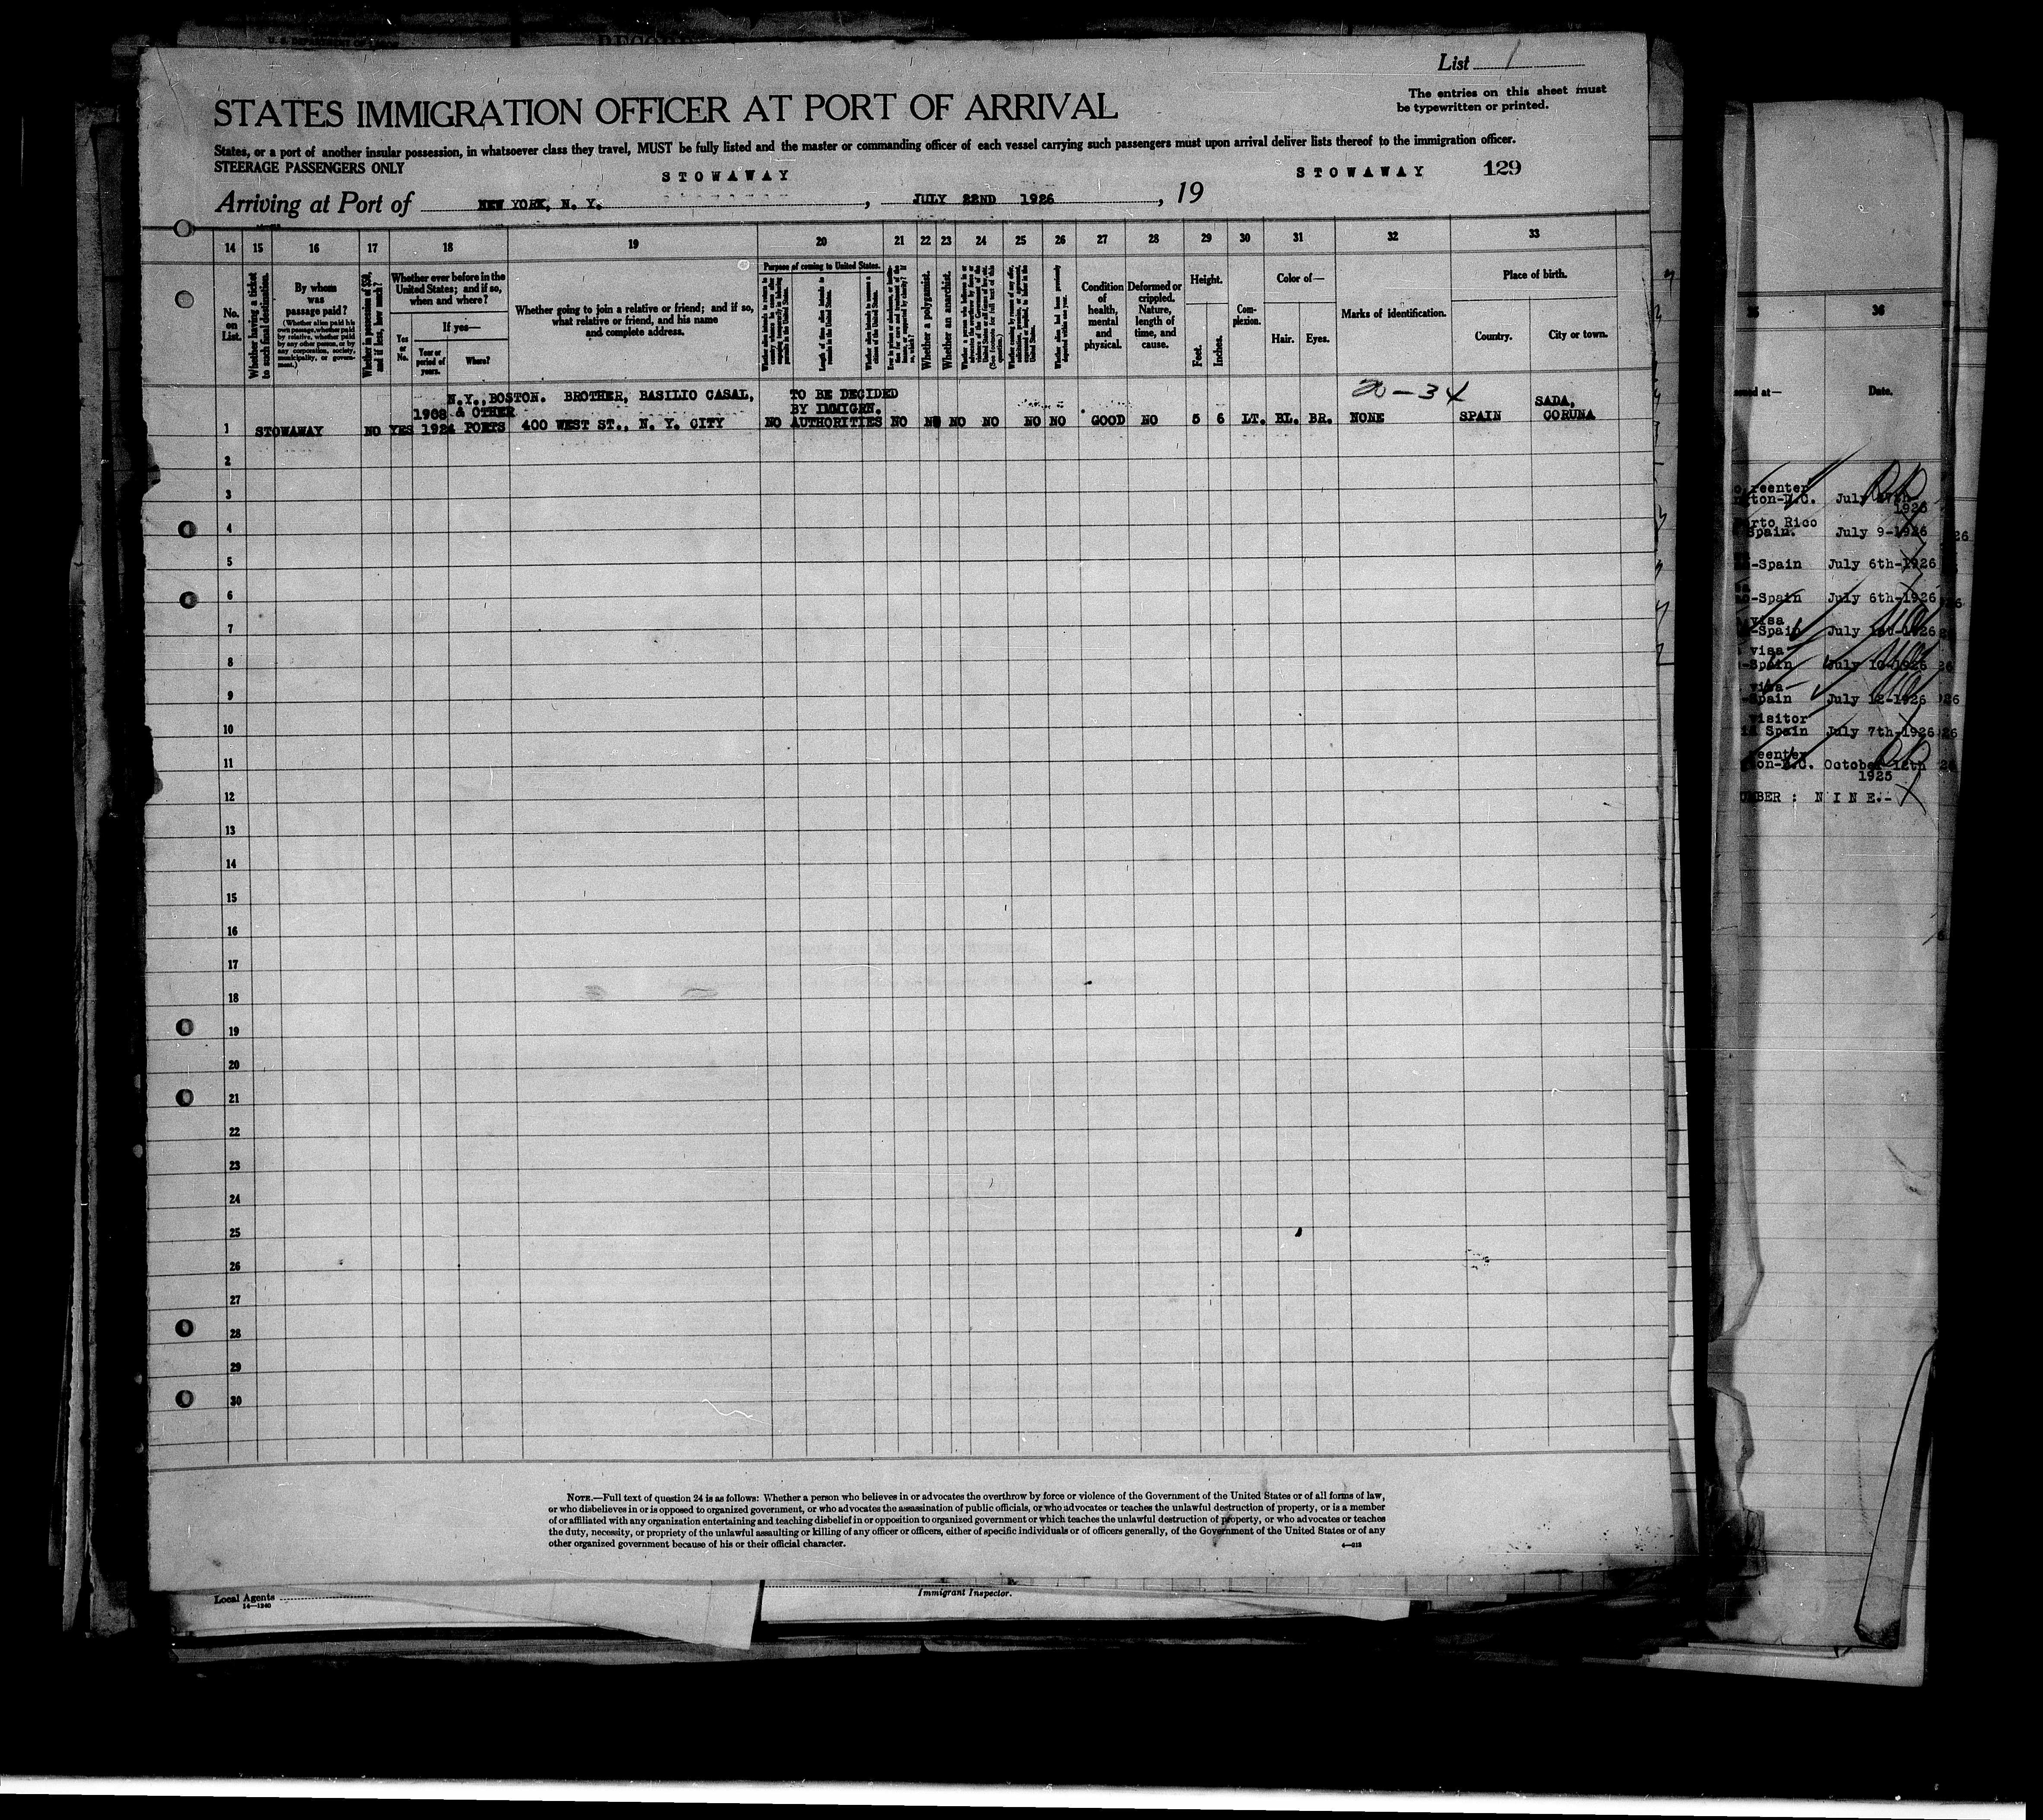 U. S. DEPARTMENT OF LABOR
List 1
STATES IMMIGRATION OFFICER AT PORT OF ARRIVAL
The entries on this sheet must
be typewritten or printed.
States, or a port of another insular possession, in whatsoever class they travel, MUST be fully listed and the master or commanding officer of each vessel carrying such passengers must upon arrival deliver lists thereof to the immigration officer.
STEERAGE PASSENGERS ONLY
STOWAWAY
STOWAWAY 129
Arriving at Port of NEW YORK, N. Y. , JULY 22ND 1926 , 19
14 15 16 17 18 19 20 21 22 23 24 25 26 27 28 29 30 31 32 33
No.
on
List.
Whether having a ticket
to such final destination.
By whom
was
passage paid?
(Whether alien paid his
own passage, whether paid
by relative, whether paid
by any other person, or by
any corporation, society,
municipality, or govern-
ment.)
Whether in possession of $50,
and if less, how much?
Whether ever before in the
United States; and if so,
when and where?
Yes
or
No.
If yes—
Year or
period of
years.
Where?
Whether going to join a relative or friend; and if so,
what relative or friend, and his name
and complete address.
Purpose of coming to United States.
Length of time alien intends to
remain in the United States.
Whether a polygamist.
Whether an anarchist.
Condition
of
health,
mental
and
physical.
Deformed or
crippled.
Nature,
length of
time, and
cause.
Height.
Feet.
Inches.
Com-
plexion.
Color of—
Hair.
Eyes.
Marks of identification.
Place of birth.
Country.
City or town.
20-34
N.Y., BOSTON. BROTHER, BASILIO CASAL, TO BE DECIDED SADA,
1908 & OTHER BY IMMIGRN.
1 STOWAWAY NO YES 1924 PORTS 400 WEST ST., N. Y. CITY NO AUTHORITIES NO NO NO NO NO NO GOOD NO 5 6 LT. BL. BR. NONE SPAIN CORUNA
2
3
4
5
6
7
8
9
10
11
12
13
14
15
16
17
18
19
20
21
22
23
24
25
26
27
28
29
30
NOTE.—Full text of question 24 is as follows: Whether a person who believes in or advocates the overthrow by force or violence of the Government of the United States or of all forms of law,
or who disbelieves in or is opposed to organized government, or who advocates the assassination of public officials, or who advocates or teaches the unlawful destruction of property, or is a member
of or affiliated with any organization entertaining and teaching disbelief in or opposition to organized government or which teaches the unlawful destruction of property, or who advocates or teaches
the duty, necessity, or propriety of the unlawful assaulting or killing of any officer or officers, either of specific individuals or of officers generally, of the Government of the United States or of any
other organized government because of his or their official character.
Local Agents
14—1240
Immigrant Inspector.
36
Date.
reenter
ton-D.C. July
1926
Porto Rico
Spain. July 9-1926
-Spain July 6th-1926
-Spain July 6th-1926
visa
-Spain July 1926
visa
-Spain July 10-1926
visa
-Spain July 12-1926
visitor
Spain July 7th-1926
reenter
ton-D.C. October 12th
1925
MBER : N I N E.-